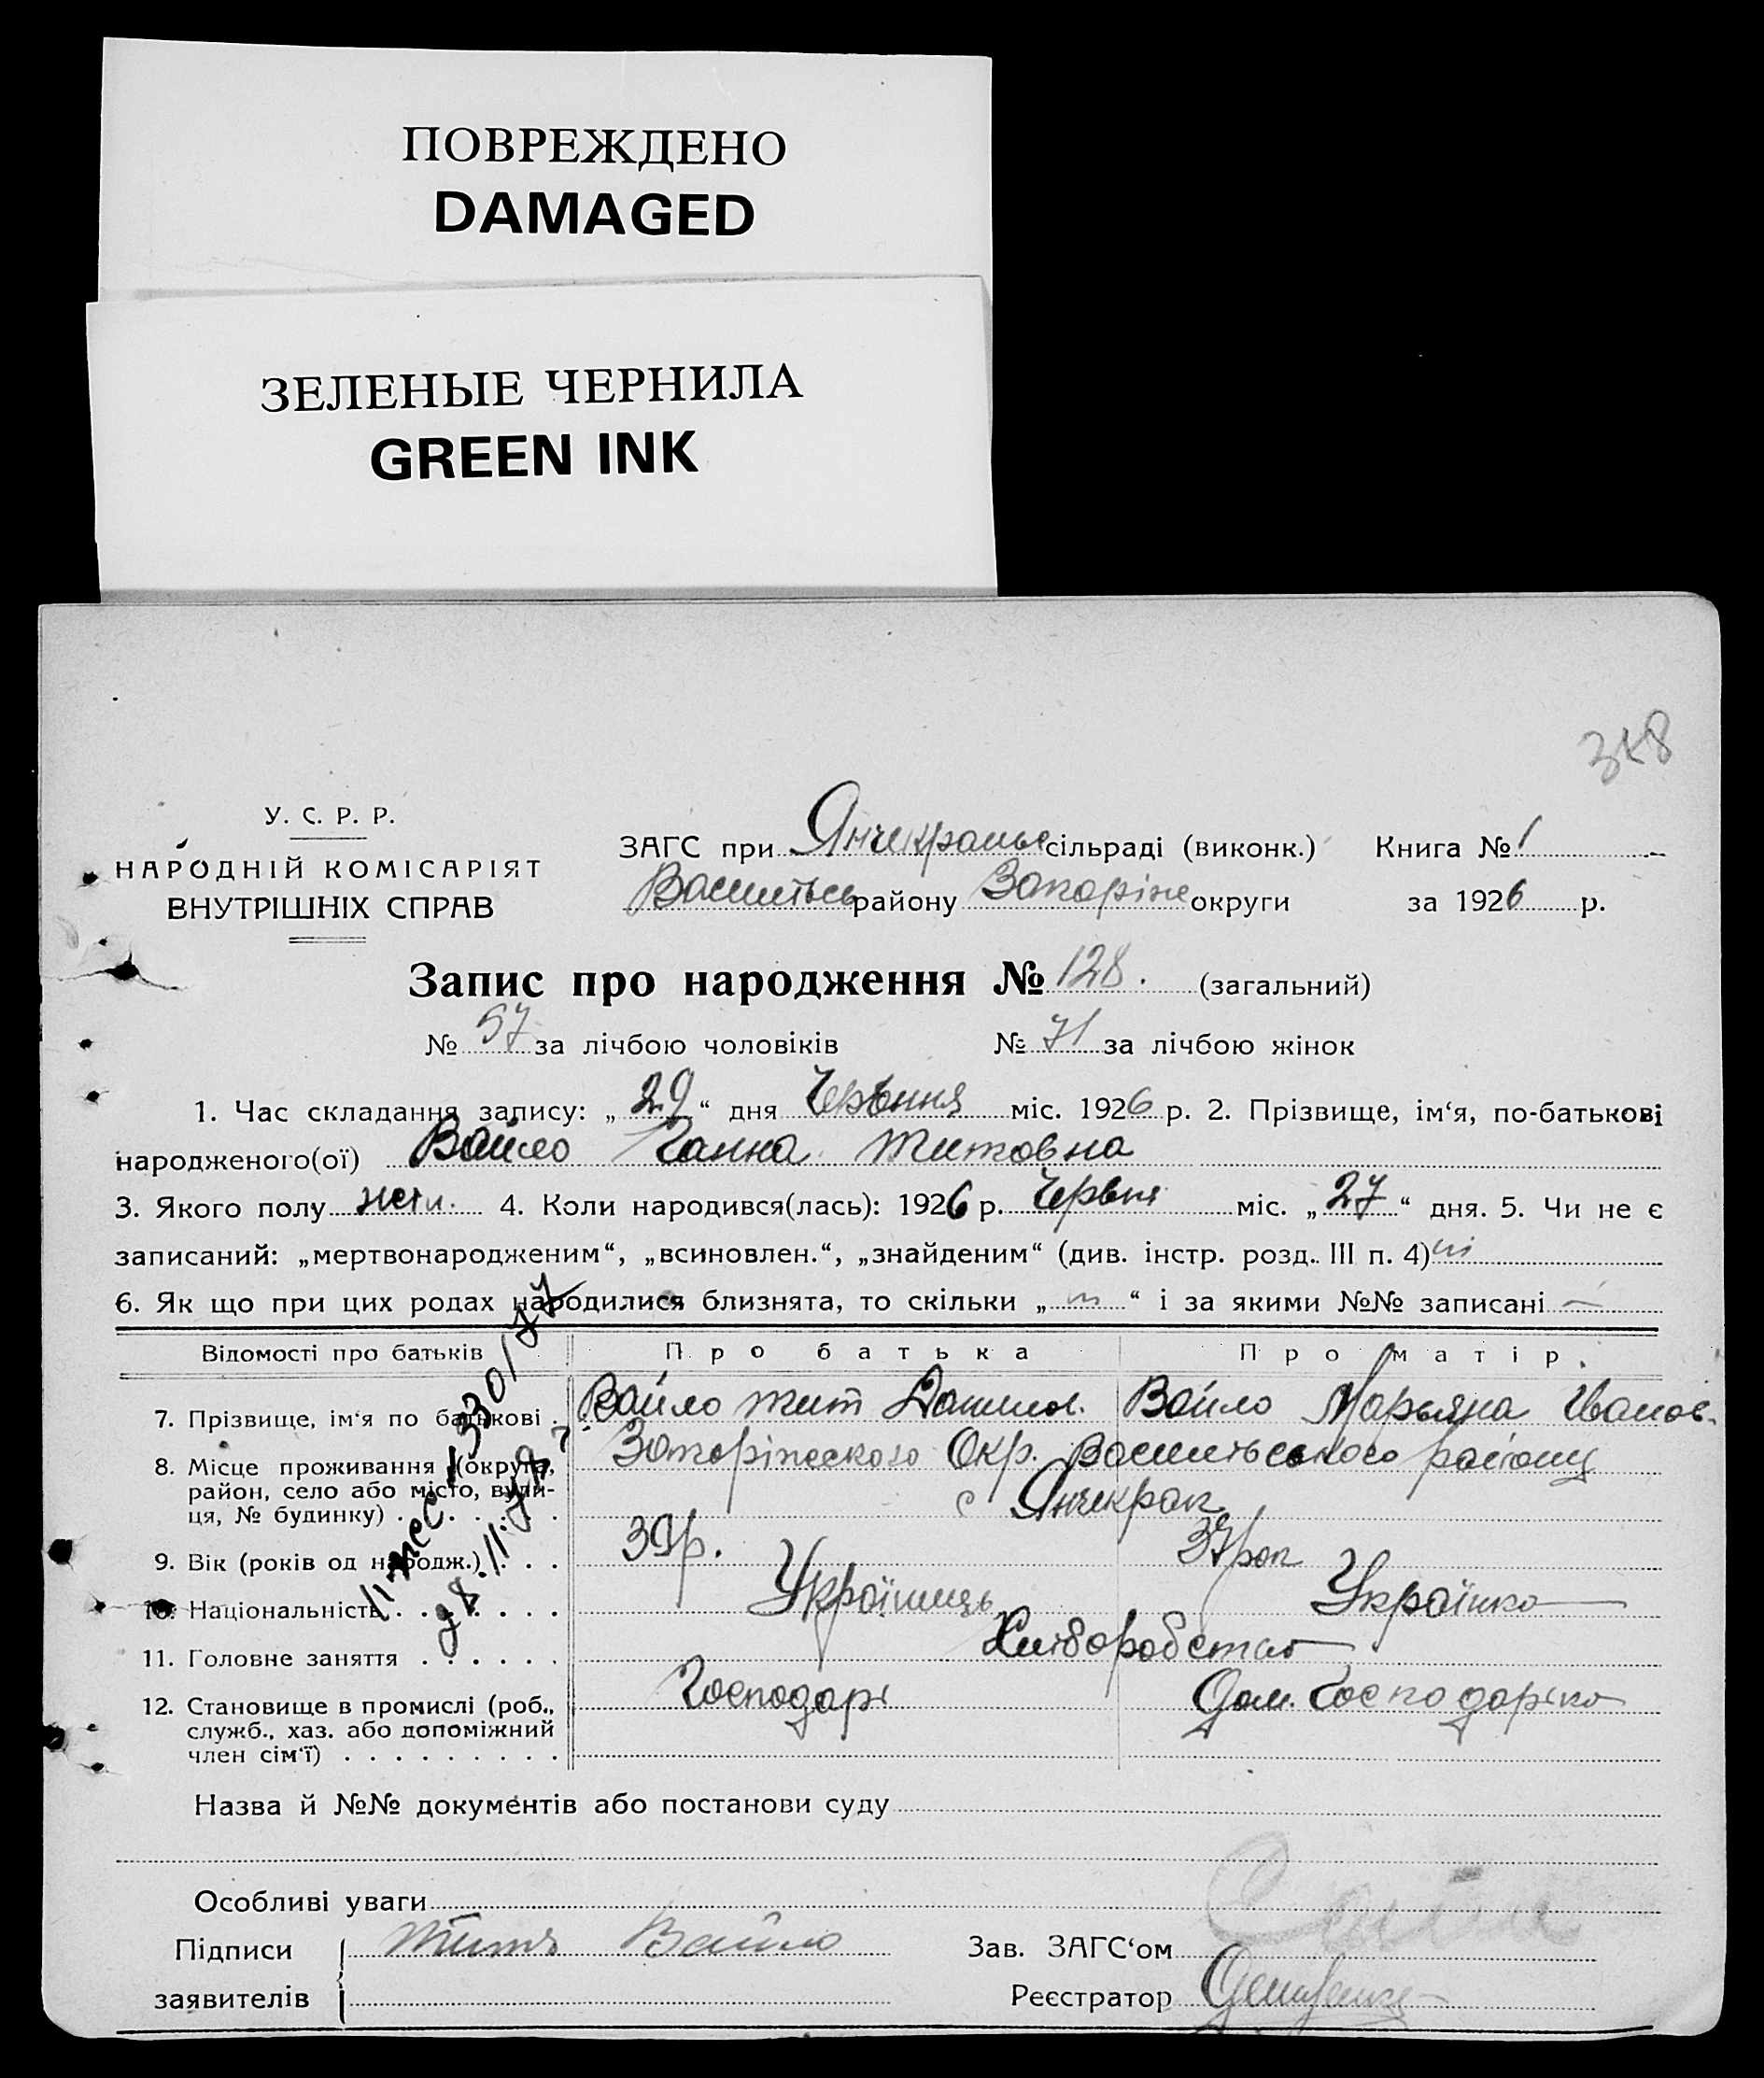 ПОВРЕЖДЕНО
DAMAGED
ЗЕЛЕНЫЕ ЧЕРНИЛА
GREEN INK
У. С. Р. Р.
НАРОДНІЙ КОМІСАРІЯТ
ВНУТРІШНІХ СПРАВ
ЗАГС при сільраді (виконк.) Книга № 1
району округи за 1926 р.
Запис про народження № 128. (загальний)
№ 57 за лічбою чоловіків № 71 за лічбою жінок
1. Час складання запису: „ 29 “ дня Червння міс. 1926 р. 2. Прізвище, ім‘я, по-батькові
народженого(ої) Вайло Ганна Титовна
3. Якого полу 4. Коли народився(лась): 1926 р. Червня міс. „ 27 “ дня. 5. Чи не є
записаний: „мертвонародженим“, „всиновлен.“, „знайденим“ (див. інстр. розд. III п. 4) ні
6. Як що при цих родах народилися близнята, то скільки „ “ і за якими №№ записані —
Відомості про батьків Про батька Про матір.
7. Прізвище, ім‘я по батькові . Вайло Тит Данилов. Вайло Марьяна Іванов.
8. Місце проживання (округа, Окр. району
район, село або місто, вули-
ця, № будинку) . . . . . . с Янчекрак
9. Вік (років од народж.) . . . 39 р. 37 рок
10. Національність . . . . . . . Українець Українка
11. Головне заняття . . . . . . Хліборобство
12. Становище в промислі (роб., Господарь Дом. Господарка
служб., хаз. або допоміжний
член сім‘ї) . . . . . . . . . .
Назва й №№ документів або постанови суду
Особливі уваги
Підписи Титъ Вайло Зав. ЗАГС‘ом
заявителів Реєстратор